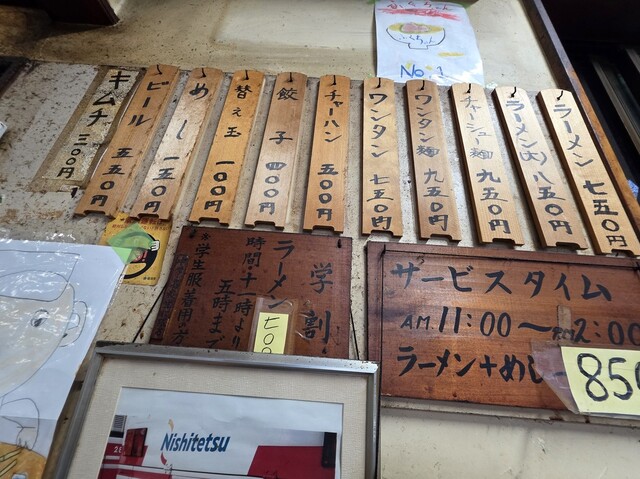 ふくちゃん
No.1
ラーメン 七五〇円
ラーメン(大) 八五〇円
チャーシュー麺 九五〇円
ワンタン麺 九五〇円
ワンタン 七五〇円
チャーハン 五〇〇円
餃子 四〇〇円
替え玉 一〇〇円
めし 一五〇円
ビール 五五〇円
キムチ 三〇〇円
学割
ラーメン 七〇〇
時間・十一時より
五時まで
学生服着用の方
サービスタイム
AM.11:00〜PM2:00
ラーメン+めし
850
Nishitetsu